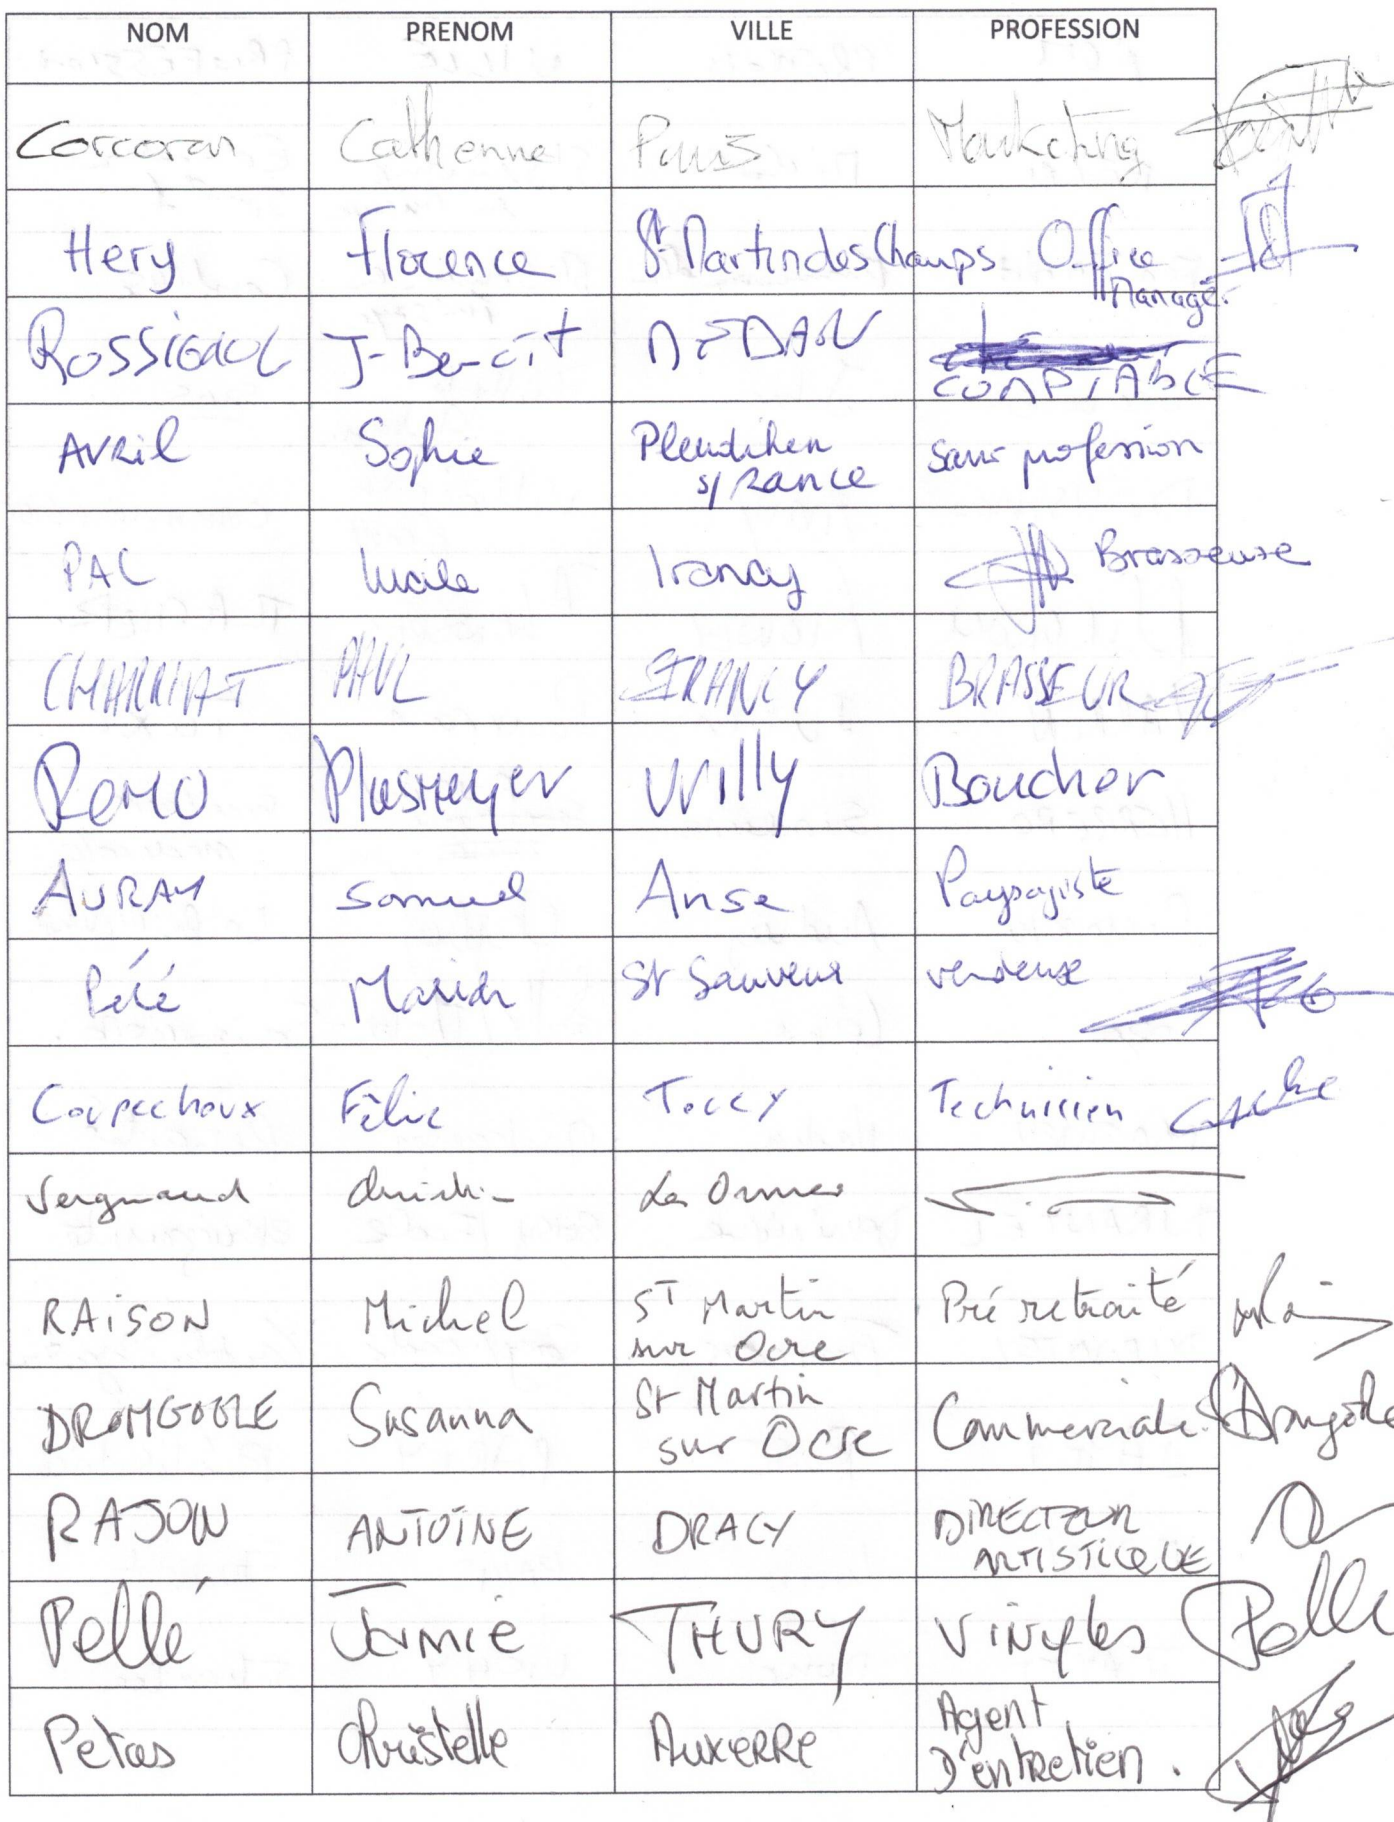 NOM PRENOM VILLE PROFESSION
Corcoran Catherine Paris Marketing
Hery Florence St Martin des Champs Office
Manager
Rossignol J-Benoit COMPTABLE
Avril Sophie Pleudihen sans profession
s/Rance
PAC Lucile Irancy Brasseuse
CHARRIAT PAUL IRANCY BRASSEUR
Romo Plusmeyer Willy Boucher
AURAY Samuel Anse Paysagiste
Pélé Marion St Sauveur vendeuse
Coupechoux Félix Toucy Technicien
Vergnaud Les Ormes
RAISON Michel ST Martin Pré retraité
sur Ocre
DROMGOOLE Susanna St Martin Commerciale
sur Ocre
RAJON ANTOINE DRACY DIRECTEUR
ARTISTIQUE
Pellé Jérmie THURY Vinyles Pellé
Petas Christelle AUXERRE Agent
D'entretien.